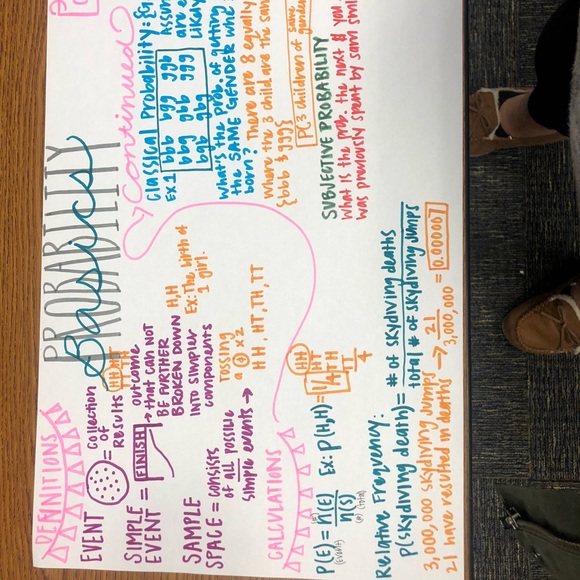 PROBABILITY
Basics
DEFINITIONS
EVENT = collection
OF
RESULTS HH, HT
SIMPLE
EVENT = FINISH → outcome
that can not
BE FURTHER
BROKEN DOWN
INTO SIMPLER
COMPONENTS
H,H
Ex: The birth of
1 girl.
SAMPLE
SPACE = consists
of all possible
simple events →
TOSSING
a x2
HH, HT, TH, TT
CALCULATIONS
P(E) = n(E)
n(S)
(EVENT)
Ex: P(H,H) = 1/4
HH
HT
TH
TT
4
Relative Frequency:
P(skydiving death) = # OF skydiving deaths
total # of skydiving jumps
3,000,000 skydiving jumps
21 have resulted in deaths → 21
3,000,000 = 0.000007
Continued
Classical Probability:
Assum
are e
likely
EX 1 bbb bgg ggb
bbg gbb ggg
bgb gbg
What's the prob. of getting
the SAME GENDER whe
born? There are 8 equally
where the 3 child are the sam
{bbb & ggg}
P(3 children of same
gender
SUBJECTIVE PROBABILITY
What is the prob. the next $ you
was previously spent by sam smi